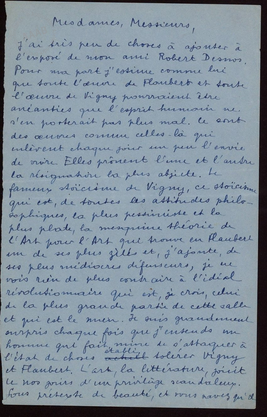 Mesdames, Messieurs,
j'ai très peu de choses à ajouter à
l'exposé de mon ami Robert Desnos.
Pour ma part j'estime comme lui
que toute l'œuvre de Flaubert et toute
l'œuvre de Vigny pourraient être
anéanties que l'esprit humain ne
s'en porterait pas plus mal. Ce sont
des œuvres comme celles-là qui
enlèvent chaque jour un peu l'envie
de vivre. Elles prônent l'une et l'autre
la résignation la plus abjecte. Le
fameux stoïcisme de Vigny, ce stoïcisme
qui est, de toutes les attitudes philo-
sophiques, la plus pessimiste et la
plus plate, la mesquine théorie de
l'Art pour l'Art que trouve en Flaubert
un de ses plus et, j'ajoute, de
ses plus médiocres défenseurs, je ne
vois rien de plus contraire à l'idéal
révolutionnaire qui est, je crois, celui
de la plus grande partie de cette salle
et qui est le mien. Je suis grandement
surpris chaque fois que j'entends un
homme qui fait mine de s'attaquer à
l'état de choses établi tolérer Vigny
et Flaubert. L'art, la littérature, jouit
de nos jours d'un privilège scandaleux.
Sous prétexte de beauté, et vous savez qu'à